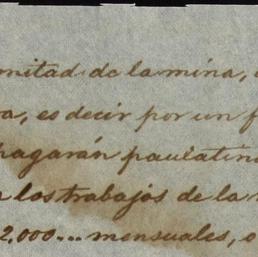 mitad de la mina,
a, es decir por un
pagarán paulatina
los trabajos de la
2,000... mensuales, o